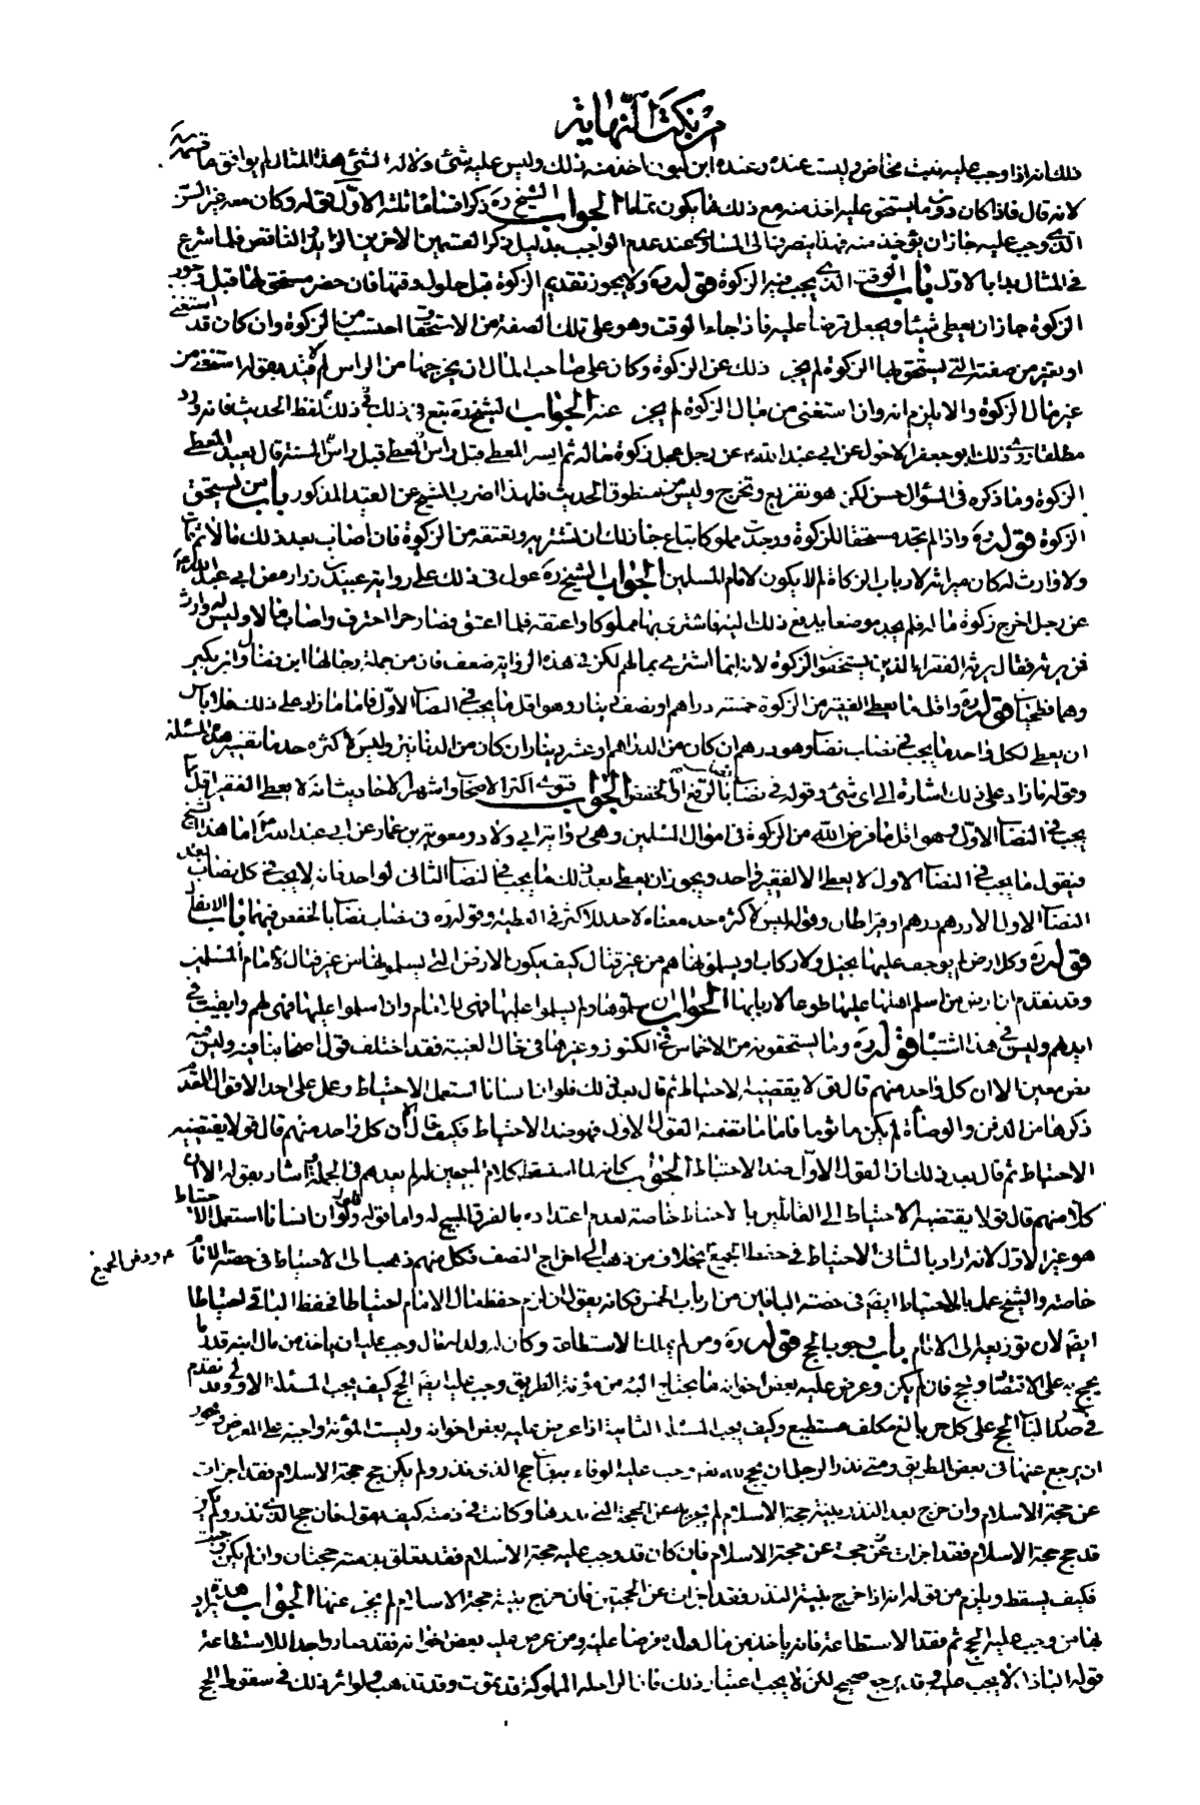 من نكت النهاية
ذلك انه اذا وجب عليه بنت مخاض وليست عنده وعنده ابن لبون اخذ منه ذلك وليس عليه شئ ولا له شئ هذا المثال لم يوافق ما قسمه
لانه قال فاذا كان دون ما يستحق عليه اخذ منه مع ذلك ما يكون تماما الجواب الشيخ ره ذكر اقساما ثلثة الاول قوله وكان معه غير السن
الذي وجب عليه جاز ان يؤخذ منه فهذا ينصرف الى المساوي عند عدم الواجب بدليل ذكر القسمين الاخرين الزايد والناقص فلما شرع
في المثال بدا بالاول باب الوقت الذي يجب فيه الزكوة قوله ره ولا يجوز تقديم الزكوة قبل حلول وقتها فان حضر مستحق لها قبل وجوب
الزكوة جاز ان يعطى شيئا ويجعل قرضا عليه فاذا جاء الوقت وهو على تلك الصفة من الاستحقاق احتسب من الزكوة وان كان قد استغنى
او تغير من صفته التي يستحق بها الزكوة لم يجز ذلك عن الزكوة وكان على صاحب المال ان يخرجها من الراس لم لا قيد بقوله استغنى من
غير مال الزكوة والا يلزم انه وان استغنى من مال الزكوة لم يجز عنه الجواب الشيخ ره تبع في ذلك لفظ الحديث فانه ورد
مطلقا روى ذلك ابو جعفر الاحول عن ابي عبد الله ع عن رجل عجل زكوة ماله ثم ايسر المعطى قبل راس السنة قال يعيد المعطي
الزكوة وما ذكره في السؤال حسن لكن هو تفريع وتخرج وليس من منطوق الحديث فلهذا اضرب الشيخ عن القيد المذكور باب من يستحق
الزكوة قوله ره واذا لم تجد مستحقا للزكوة ووجدت مملوكا يباع جاز لك ان تشتريه وتعتقه من الزكوة فان اصاب بعد ذلك مالا ثم مات
ولا وارث له كان ميراثه لارباب الزكاة لم لا يكون لامام المسلمين الجواب الشيخ ره عول في ذلك على رواية عبيد بن زرارة عن ابي عبد الله ع
عن رجل اخرج زكوة ماله فلم يجد موضعا يدفع ذلك اليه فاشترى بها مملوكا واعتقه فلما اعتق وصار حرا احترف واصاب مالا وليس له وارث
فمن يرثه فقال يرثه الفقراء الذين يستحقون الزكوة لانه انما اشترى بمالهم لكن في هذا الرواية ضعف فان من جملة رجالها ابن فضال وابن بكير
وهما فطحيان قوله ره واقل ما يعطى الفقير من الزكوة خمسة دراهم او نصف دينار وهو اقل ما يجب في النصاب الاول فاما ما زاد على ذلك فلا باس
ان يعطى لكل واحد ما يجب في نصاب نصاب وهو درهم ان كان من الدراهم او عشر دينار ان كان من الدنانير وليس لاكثره حد ما تفسير هذه المسئلة
وقوله فما زاد على ذلك اشارة الى اي شئ وقوله في نصاب نصاب بالرفع او الخفض الجواب فتوى اكثر الاصحاب واشهر الاحاديث انه لا يعطى الفقير اقل ما
يجب في النصاب الاول وهو اقل ما فرض الله من الزكوة في اموال المسلمين وهي رواية ابي ولاد ومعوية بن عمار عن ابي عبد الله ع اما هذا الشيخ
فيقول ما يجب في النصاب الاول لا يعطى الا لفقير واحد ويجوز ان يعطى بعد ذلك ما يجب في النصاب الثاني لواحد فانه لا يجب في كل نصاب بعد
النصاب الاول الا درهم درهم او قيراطان وقوله ليس لاكثره حد معناه لا حد للاكثر في العطية وقوله ره في نصاب نصاب بالخفض فيهما باب الانفال
قوله ره وكل ارض لم يوجف عليها بخيل ولا ركاب او يسلمونها هم من غير قتال كيف يكون الارض التي يسلمونها من غير قتال للامام المسلمين
وقد تقدم ان ارض من اسلم اهلها عليها طوعا لاربابها الجواب ان سلموها ولم يسلموا عليها فهي للامام وان اسلموا عليها فهي لهم وابقيت في
ايديهم وليس في هذا اشتباه قوله ره وما يستحقونه من الاخماس في الكنوز وغيرها في حال الغيبة فقد اختلف قول اصحابنا فيه وليس فيه
نص معين الا ان كل واحد منهم قال قولا يقتضيه الاحتياط ثم قال بعد ذلك فلو ان انسانا استعمل الاحتياط وعمل على احد الاقوال المقدم
ذكرها من الدفن والوصاة لم يكن ماثوما فاما ما تضمنه القول الاول فهو ضد الاحتياط فكيف قال ان كل واحد منهم قال قولا يقتضيه
الاحتياط ثم قال بعد ذلك ان القول الاول ضد الاحتياط الجواب كانه لما اسقط كلام المبيحين له لم يعدهم في الجملة واشار بقوله الا ان
كلا منهم قال قولا يقتضيه الاحتياط الى القائلين بالاحتياط خاصة لعدم اعتداده بالفرق المبيح له واما قوله ولو ان انسانا استعمل الاحتياط
هو غير الاول لانه اراد بالثاني الاحتياط في حفظ الجميع بخلاف من ذهب الى اخراج النصف فكل منهم ذهب الى الاحتياط في حصة الامام
ودفن الجميع
خاصة والشيخ عمل بالاحتياط ايضا في حصة الباقين من ارباب الخمس فكانه يقول ان لزم حفظ مال الامام احتياطا فحفظ الباقي احتياطا
ايضا لان توزيعه الى الامام باب وجوب الحج قوله ره ومن لم يملك الاستطاعة وكان له ولد له مال وجب عليه ان ياخذ من مال ابنه قدر ما
يحج به على الاقتصاد ويحج فان لم يكن وعرض عليه بعض اخوانه ما يحتاج اليه من مؤنة الطريق وجب عليه ايضا الحج كيف يجب المسئلة الاولى وقد تقدم
في صدر الباب الحج على كل حر بالغ مكلف مستطيع وكيف يجب المسئلة الثانية اذا عرض عليه بعض اخوانه وليست المؤنة واجبة على المعرض فيجوز
ان يرجع عنها في بعض الطريق ومتى نذر الرجل ان يحج لله تعالى وجب عليه الوفاء به فان حج الذي نذر ولم يكن حج حجة الاسلام فقد اجزات
عن حجة الاسلام وان خرج بعد النذر بنية حجة الاسلام لم يجزيه عن الحجة التي نذرها وكانت في ذمته كيف يقول فان حج الذي نذر ولم يكن
قد حج حجة الاسلام فقد اجزات عن حجة عن حجة الاسلام فان كان قد وجب عليه حجة الاسلام فقد تعلق بذمته حجتان وان لم يكن وجبت
فكيف يسقط ويلزم من قوله انه اذا خرج بنية النذر فقد اجزات عن الحجتين فان خرج بنية حجة الاسلام لم يجز عنها الجواب هذه يراد
بها من وجب عليه الحج ثم فقد الاستطاعة فانه ياخذ من مال ولده فرضا عليه ومن عرض عليه بعض اخوانه فقد صار واجدا للاستطاعة
قوله الباذل لا يجب عليه وقد يرجع صحيح لكن لا يجب اعتبار ذلك فان الراحلة المملوكة قد يموت وقد تذهب ولو اثر ذلك في سقوط الحج